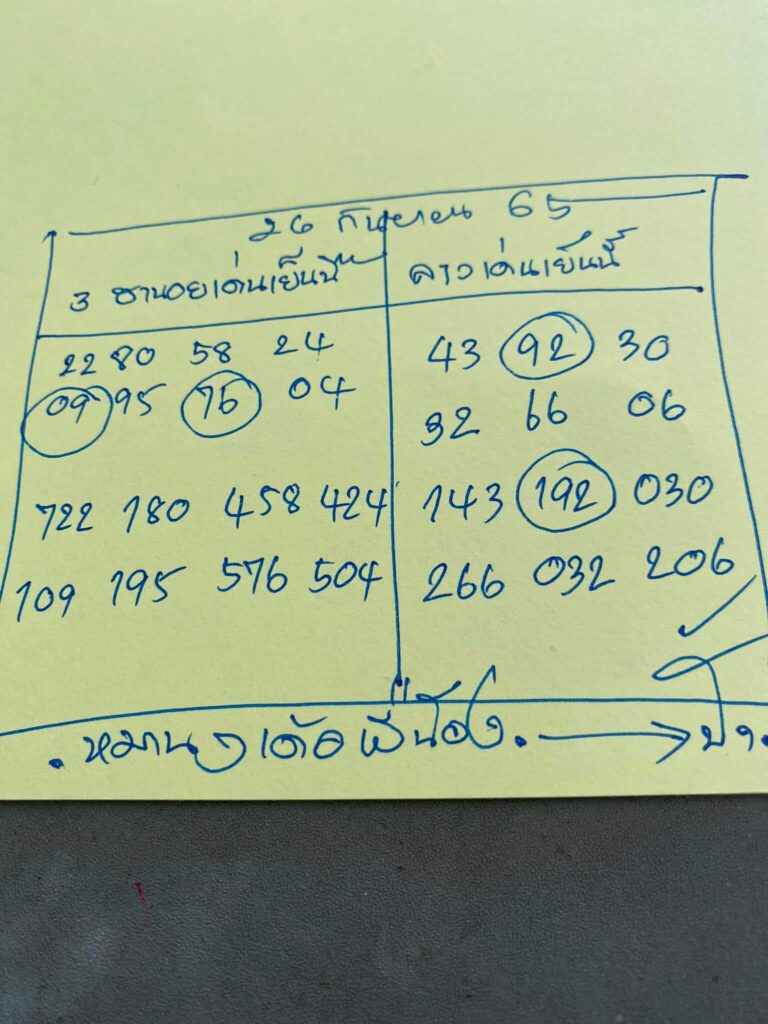 26 กันยายน 65
3 ฮานอยเด่นเย็นนี้
22 80 58 24
09 95 76 04
722 180 458 424
109 195 576 504
ลาวเด่นเย็นนี้
43 92 30
32 66 06
143 192 030
266 032 206
หมานๆ เด้อ พี่น้อง